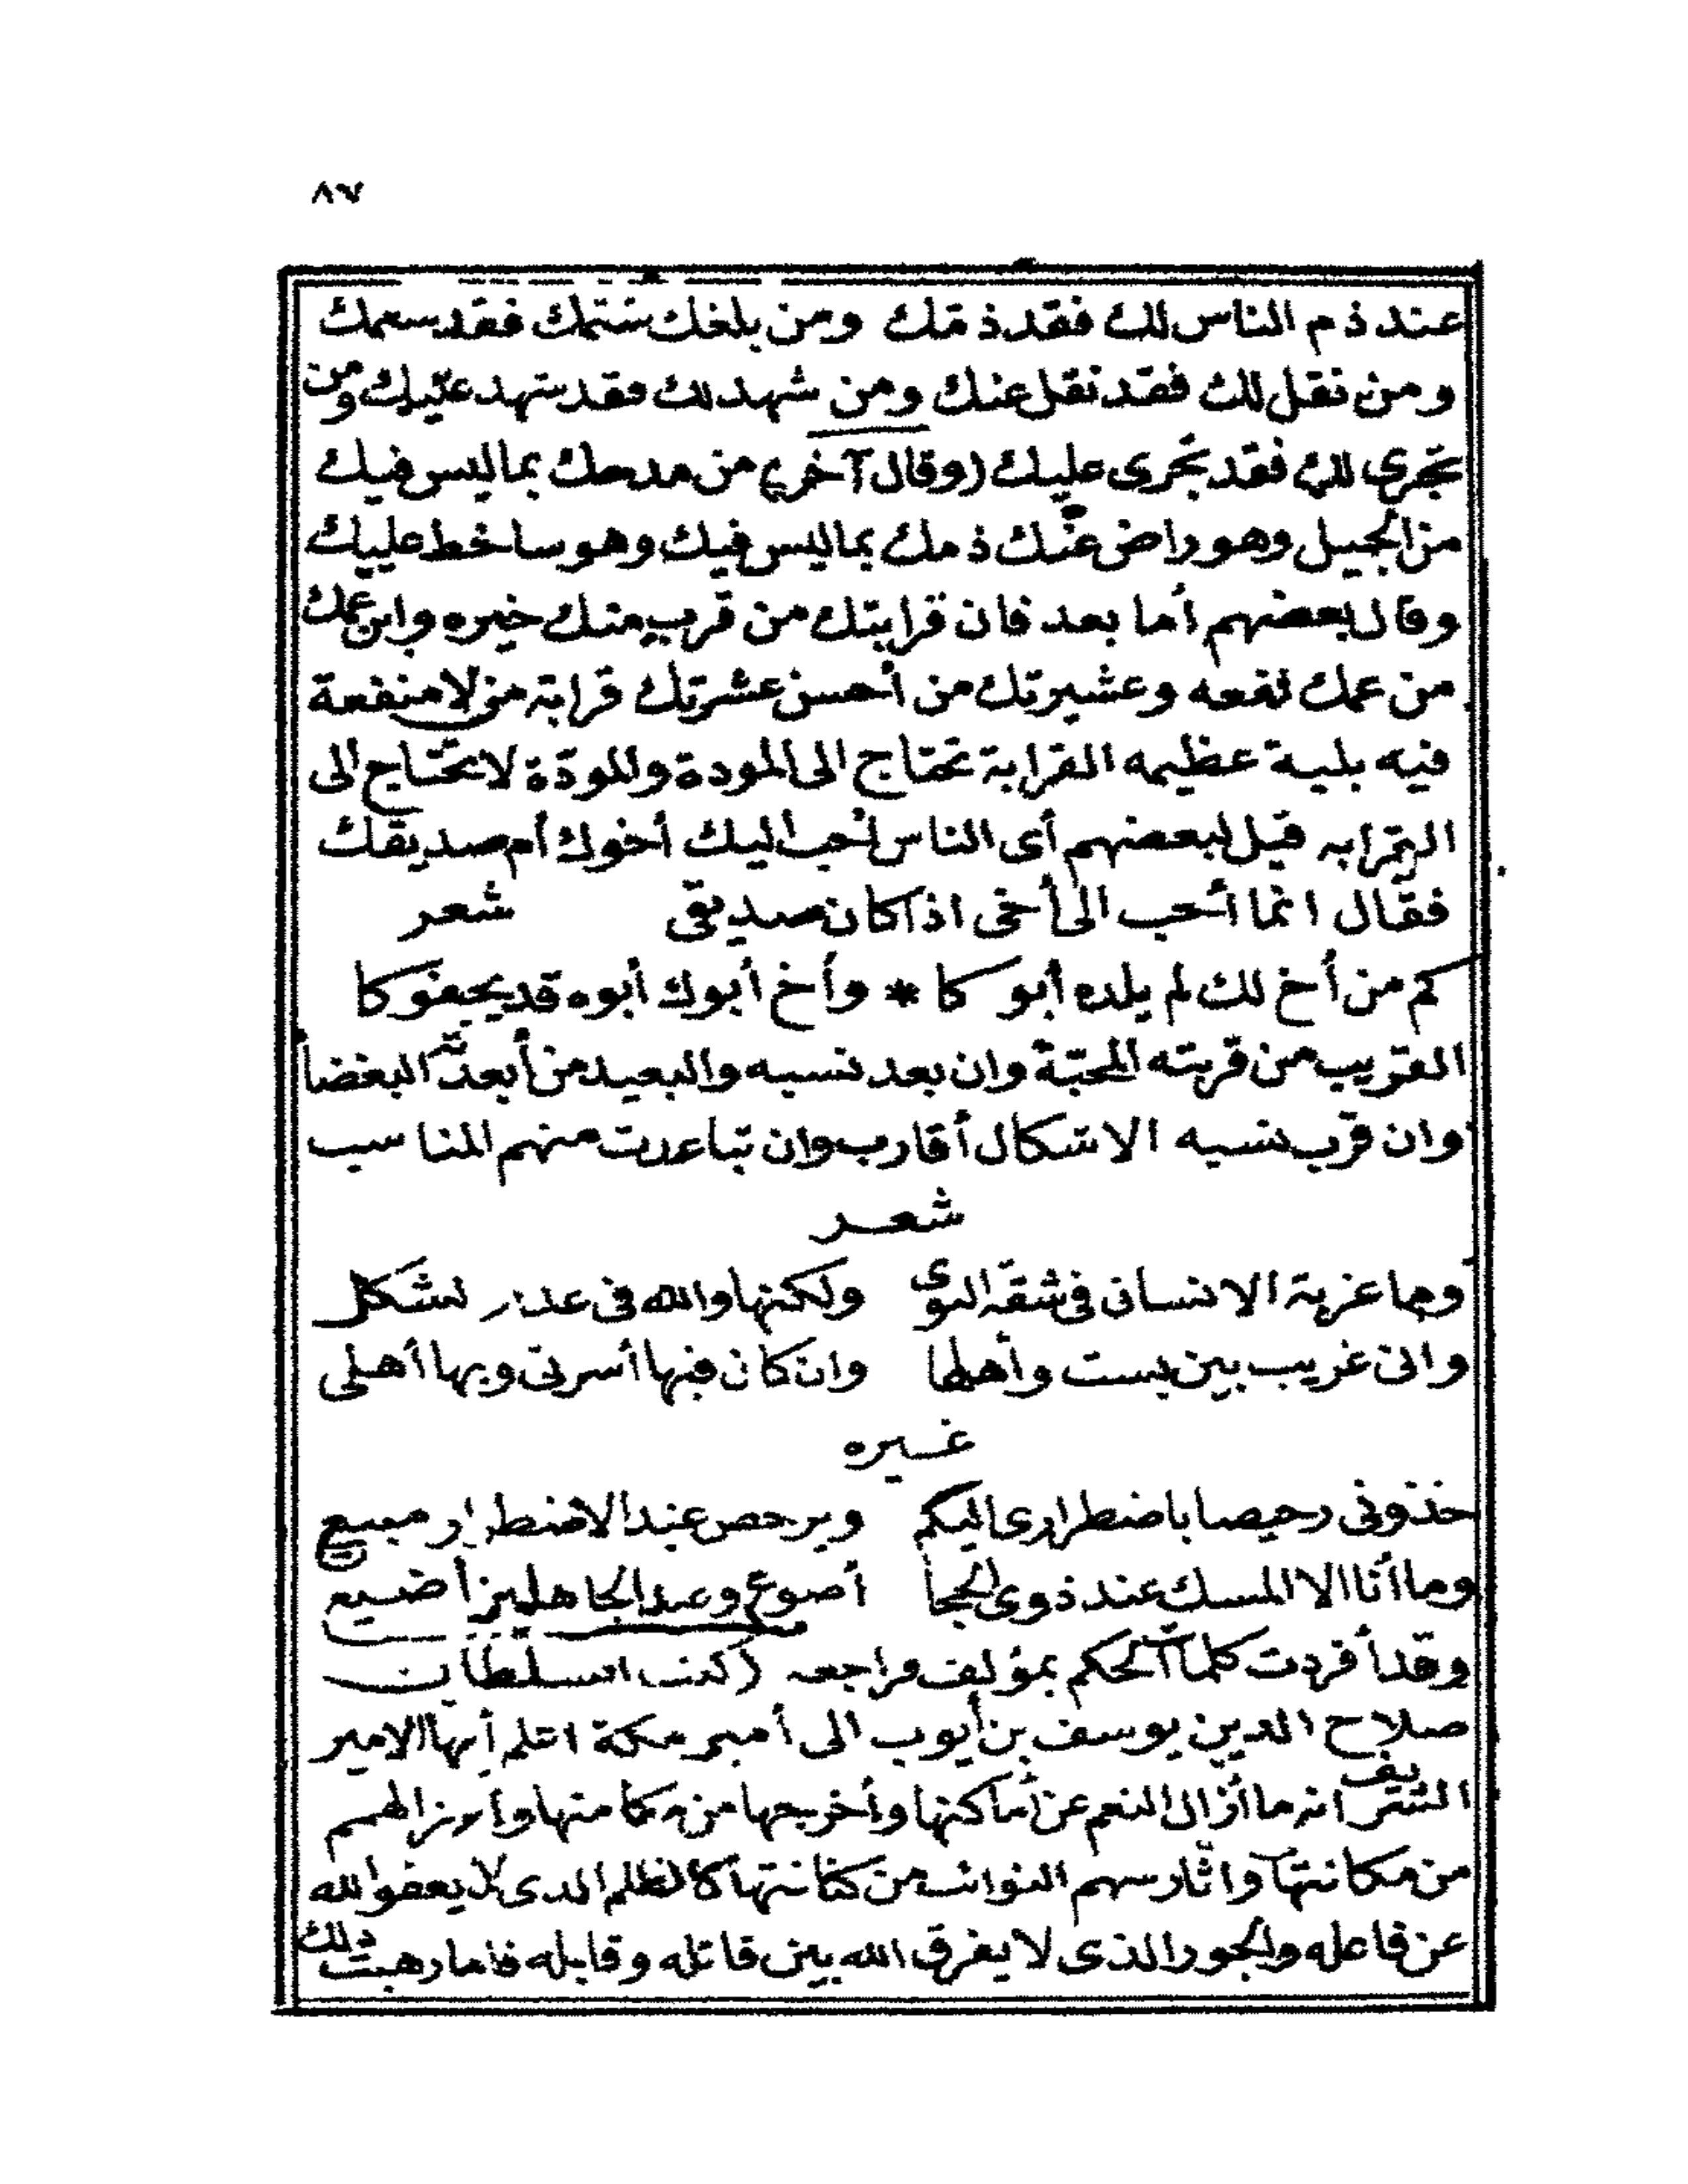 ٨٧
عند ذم الناس لك فقد ذمّك ومن بلغك شتمك فقد سعمك
ومن نقل لك فقد نقل عنك ومن شهد لك فقد شهد عليك ومن
تجرى لك فقد تجرى عليك (وقال آخر) من مدحك بما ليس فيك
من الجميل وهو راض عنك ذمك بما ليس فيك وهو ساخط عليك
وقال بعضهم أما بعد فان قرابتك من قرب منك خيره وابن عمك
من عمك نفعه وعشيرتك من أحسن عشرتك قرابة من لا منفعة
فيه بلية عظيمه القرابة تحتاج الى المودة والمودّة لا تحتاج الى
القرابه قيل لبعضهم أى الناس أحب اليك أخوك أم صديقك
فقال انما أحب الى أخى اذا كان صديقى شعر
كم من أخ لك لم يلده أبوكا * وأخ أبوك أبوه قد يجفوكا
القريب من قربته المحبّة وان بعد نسبه والبعيد من أبعدته البغضا
وان قرب نسبه الاشكال أقارب وان تباعدت منهم المناسب
شعر
وما غربة الانسان فى شقة النوى ولكنها والله فى عدم الشكل
وانى غريب بين بست وأهلها وان كان فيها أسرتى وبها أهلى
غيره
خذونى رخيصا باضطرارى اليكم ويرخص عند الاضطرار مبيع
وما أنا الا المسك عند ذوى الحجا أضوع وعند الجاهلين أضيع
وقد أفردت كلمات الحكم بمؤلف فراجعه (كتب السلطان
صلاح الدين يوسف بن أيوب الى أمير مكة اعلم أيها الامير
الشريف انه ما أزال النعم عن أماكنها وأخرجها من مكامنها وأبرز الهمم
من مكانتها وأثار سهم النوائب من كنانتها كالظلم الذى لا يعفو الله
عن فاعله والجور الذى لا يفرق الله بين قاتله وقابله فاما رهبت ذلك